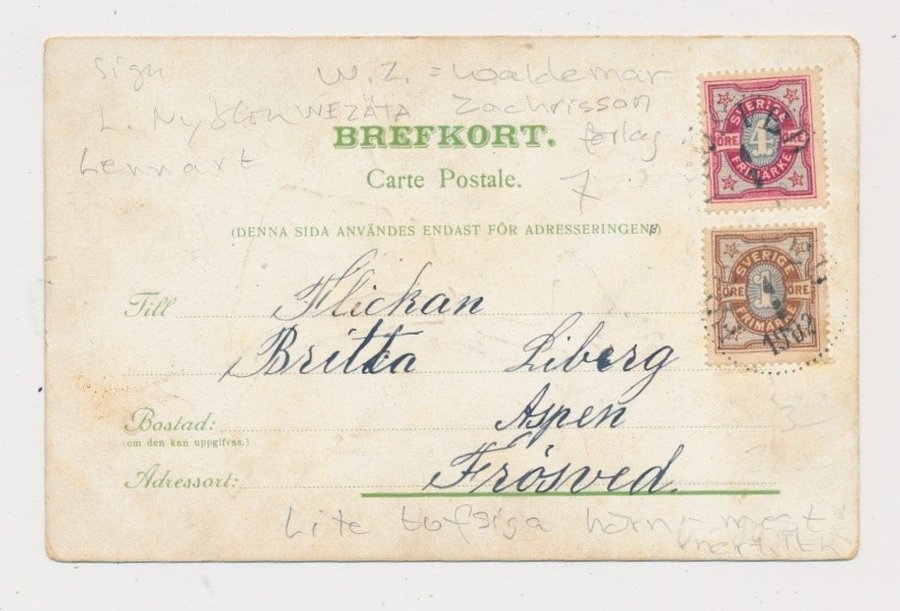 Sign
W.Z. = Waldemar
L. Nyblom WEZÄTA Zachrisson
BREFKORT. förlag
Lennart
Carte Postale. 7
(DENNA SIDA ANVÄNDES ENDAST FÖR ADRESSERINGEN.)
SVERIGE
ÖRE 4 ÖRE
FRIMÄRKE
SVERIGE
ÖRE 1 ÖRE
FRIMÄRKE
1902
Till Flickan
Britta Liberg
Bostad: Aspen
(om den kan uppgifvas.)
Adressort: Frösved.
Lite tofsiga hörn - mest